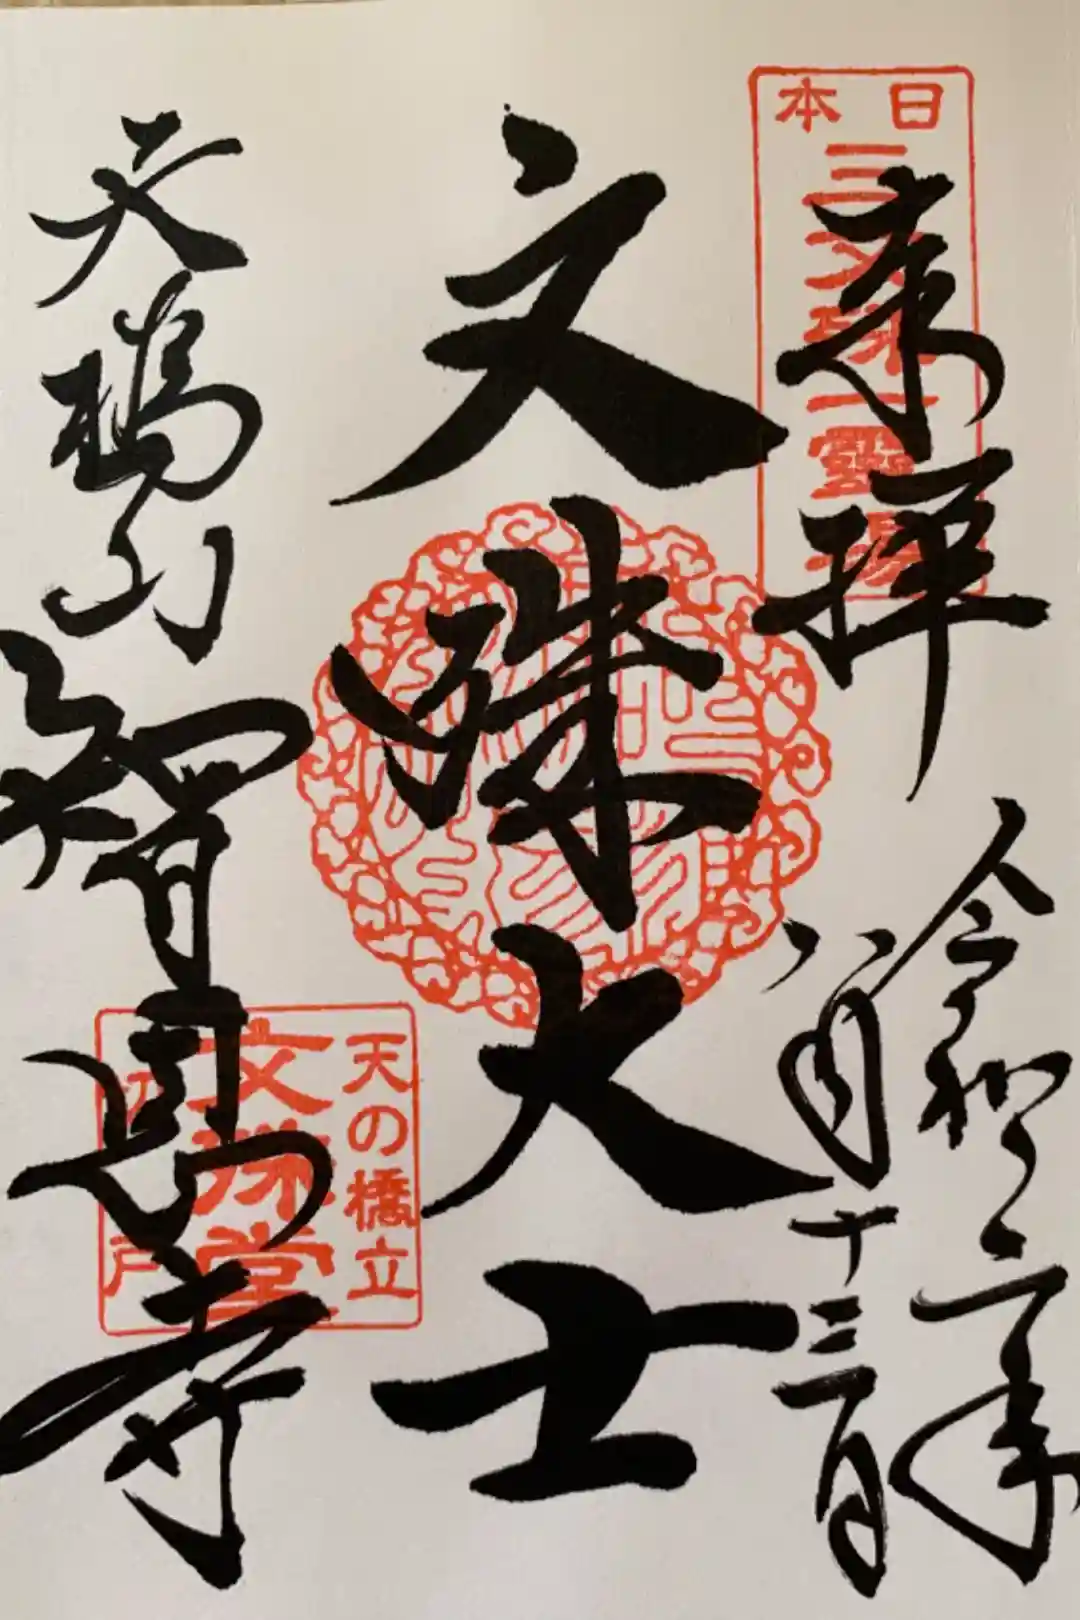 奉拝
令和二年
八月十三日
日本
三文殊一霊場
文殊大士
天橋山
智恩寺
天の橋立
文殊堂
切戸